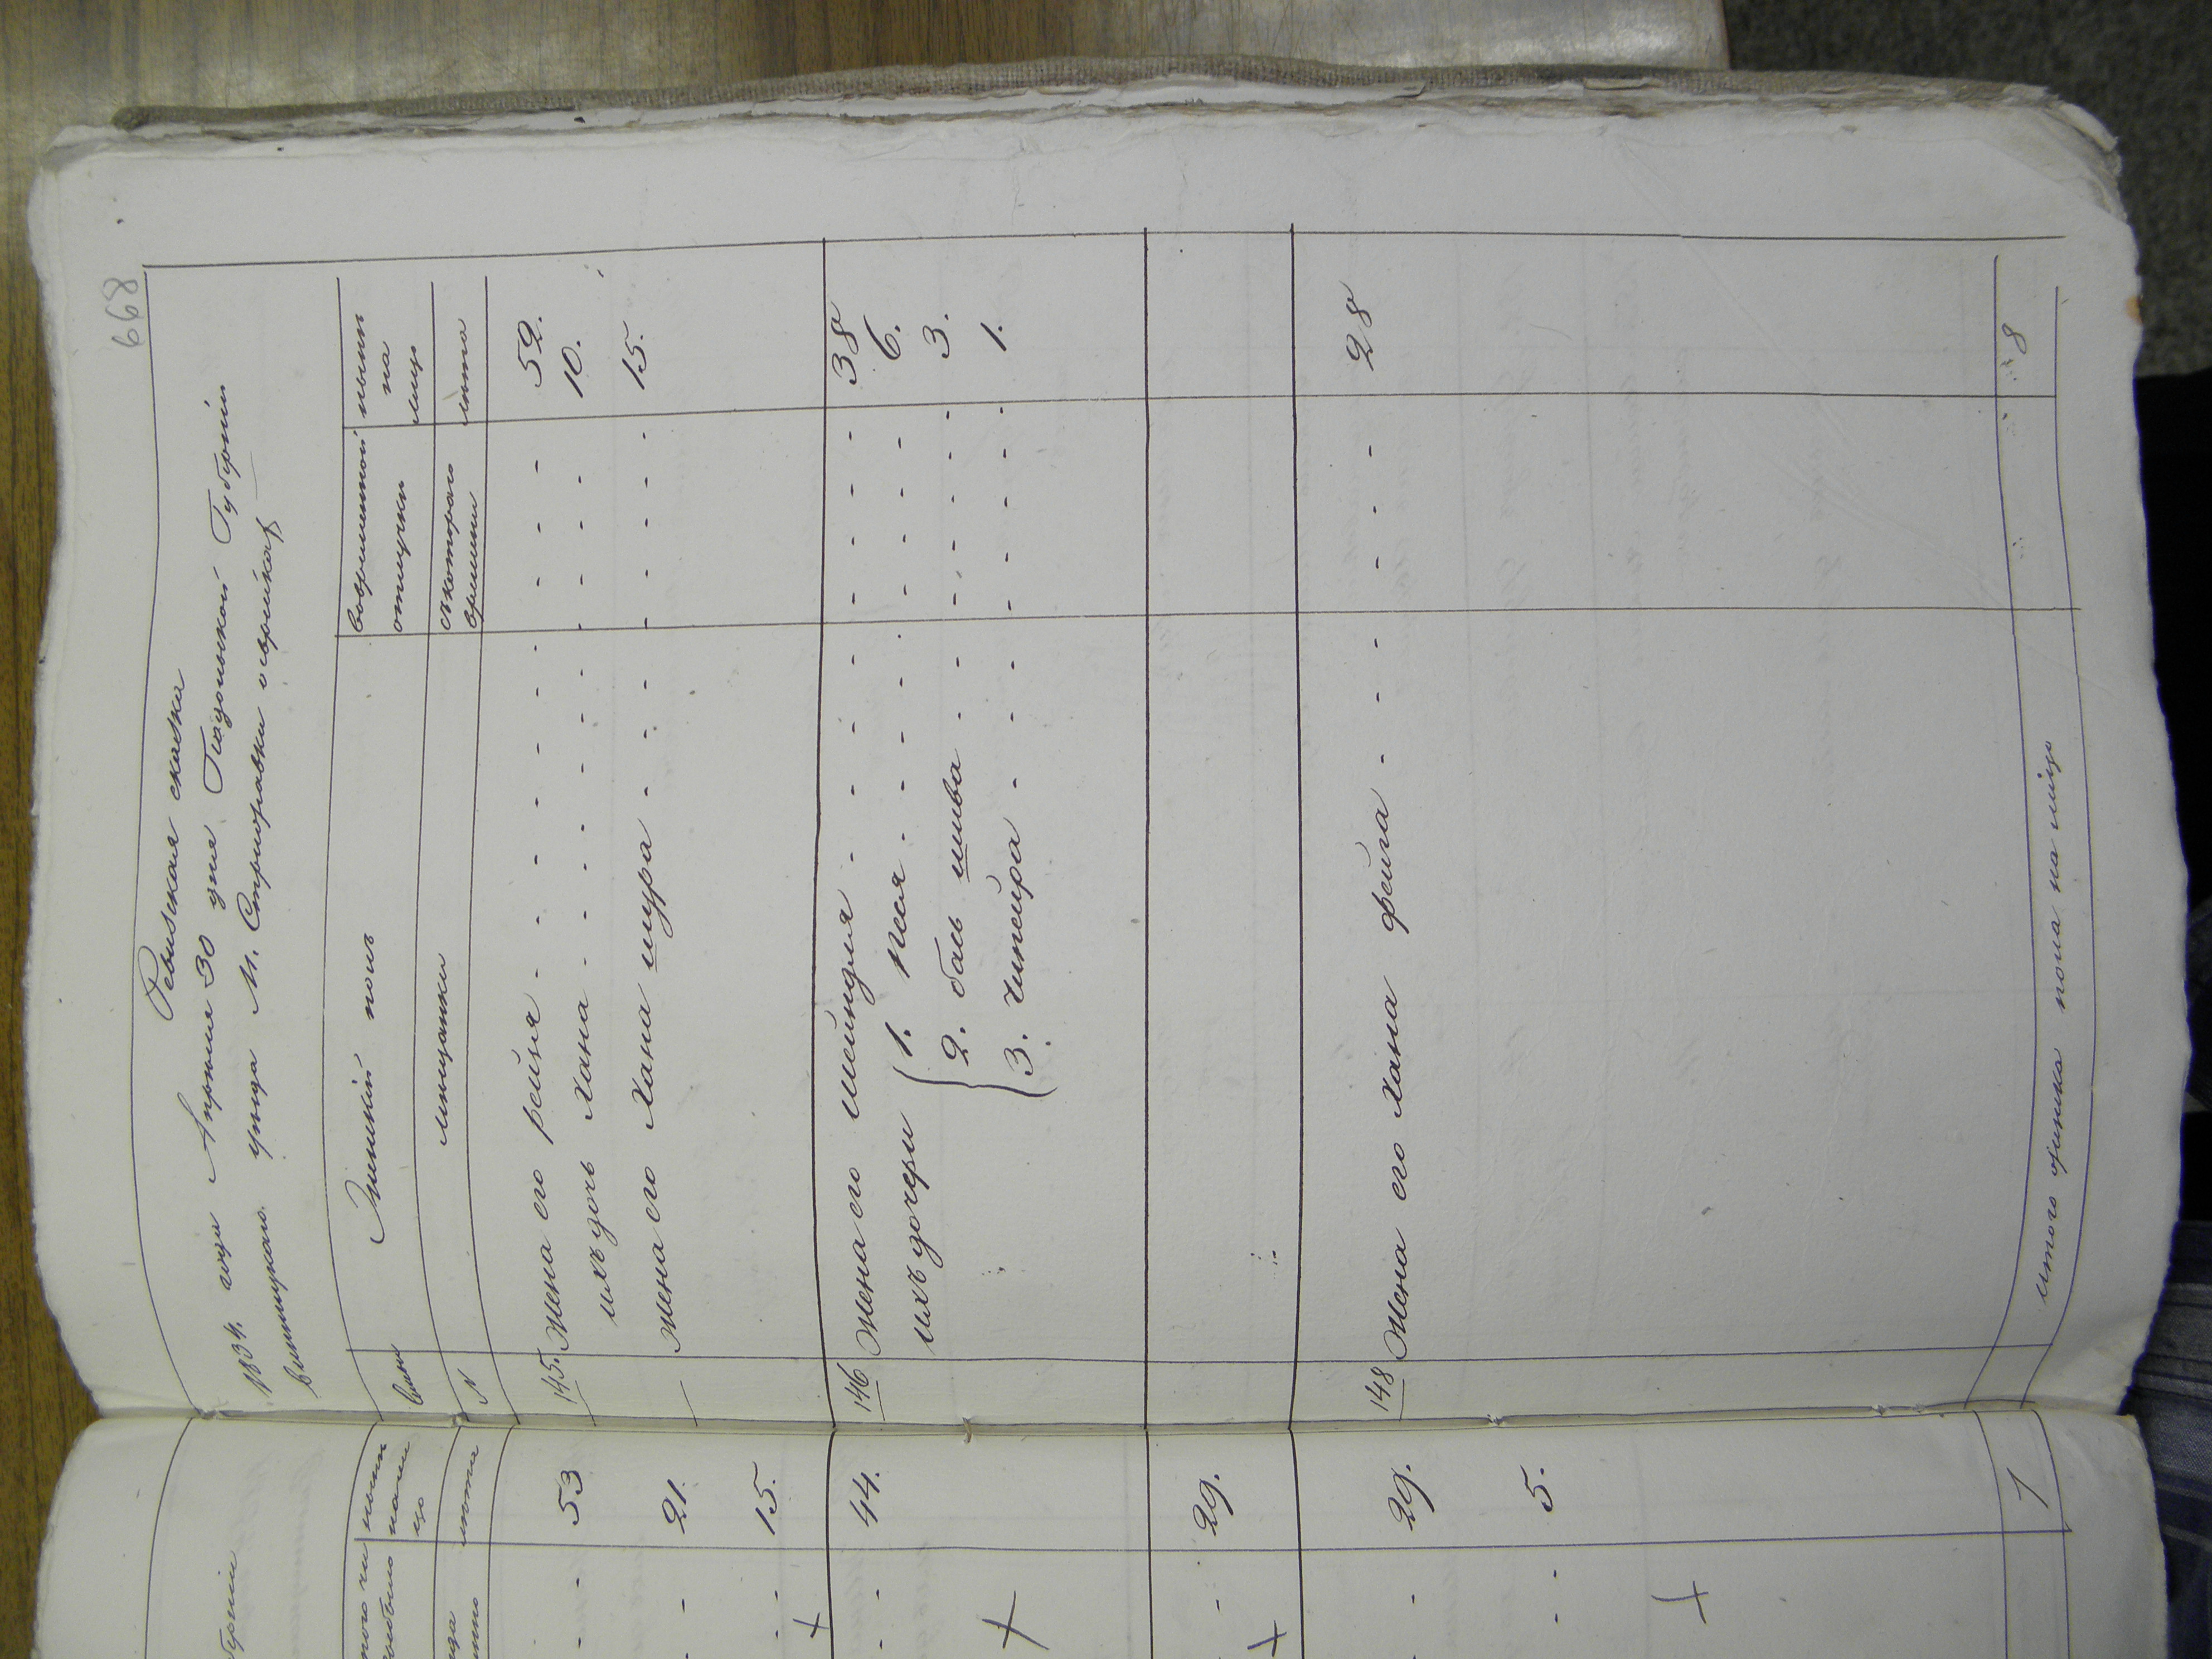 668
Ревизская сказка
1834. года Апреля 30 дня Подольской Губернии
Винницкого уезда М. Стрижавки о еврейках
семьи
Женский полъ
вовременной отлучки
ныне на лицо
N
мещанки
скотораго времени
лета
145. Жена его рейзя - - - - - - - - - 52.
ихъ дочь Хана - - - - - - - - - 10.
жена его Хана шура - - - - - - - - 15.
146 Жена его шейндля - - - - - - - - 38
ихъ дочери 1. песя - - - - - - - - 6.
2. бась шива - - - - - - 3.
3. чипейра - - - - - - 1.
148 Жена его хана фейга - - - - - - - 28
итого женска пола на лицо 8
берніи
ныне налицо
лета
53
21.
15.
44.
29.
29.
5.
7